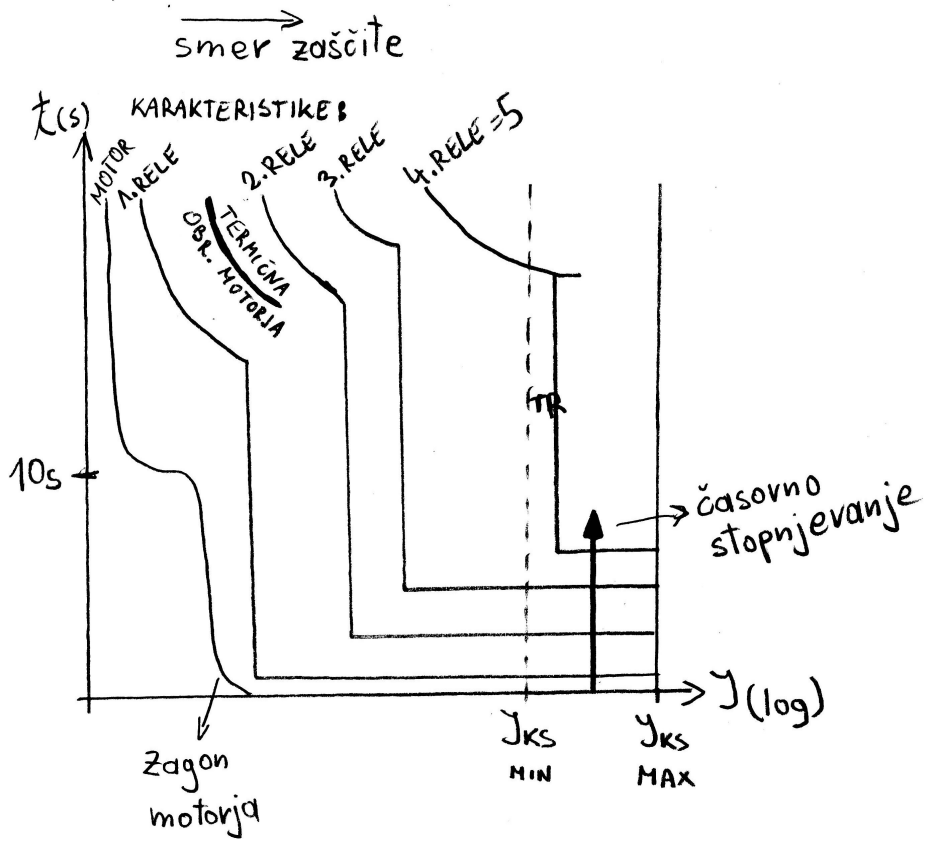 smer zaščite
t(s)
KARAKTERISTIKE:
MOTOR
1. RELE
TERMIČNA
OBR. MOTORJA
2. RELE
3. RELE
4. RELE=5
TR
10s
časovno
stopnjevanje
I(log)
IKS
MIN
IKS
MAX
zagon
motorja